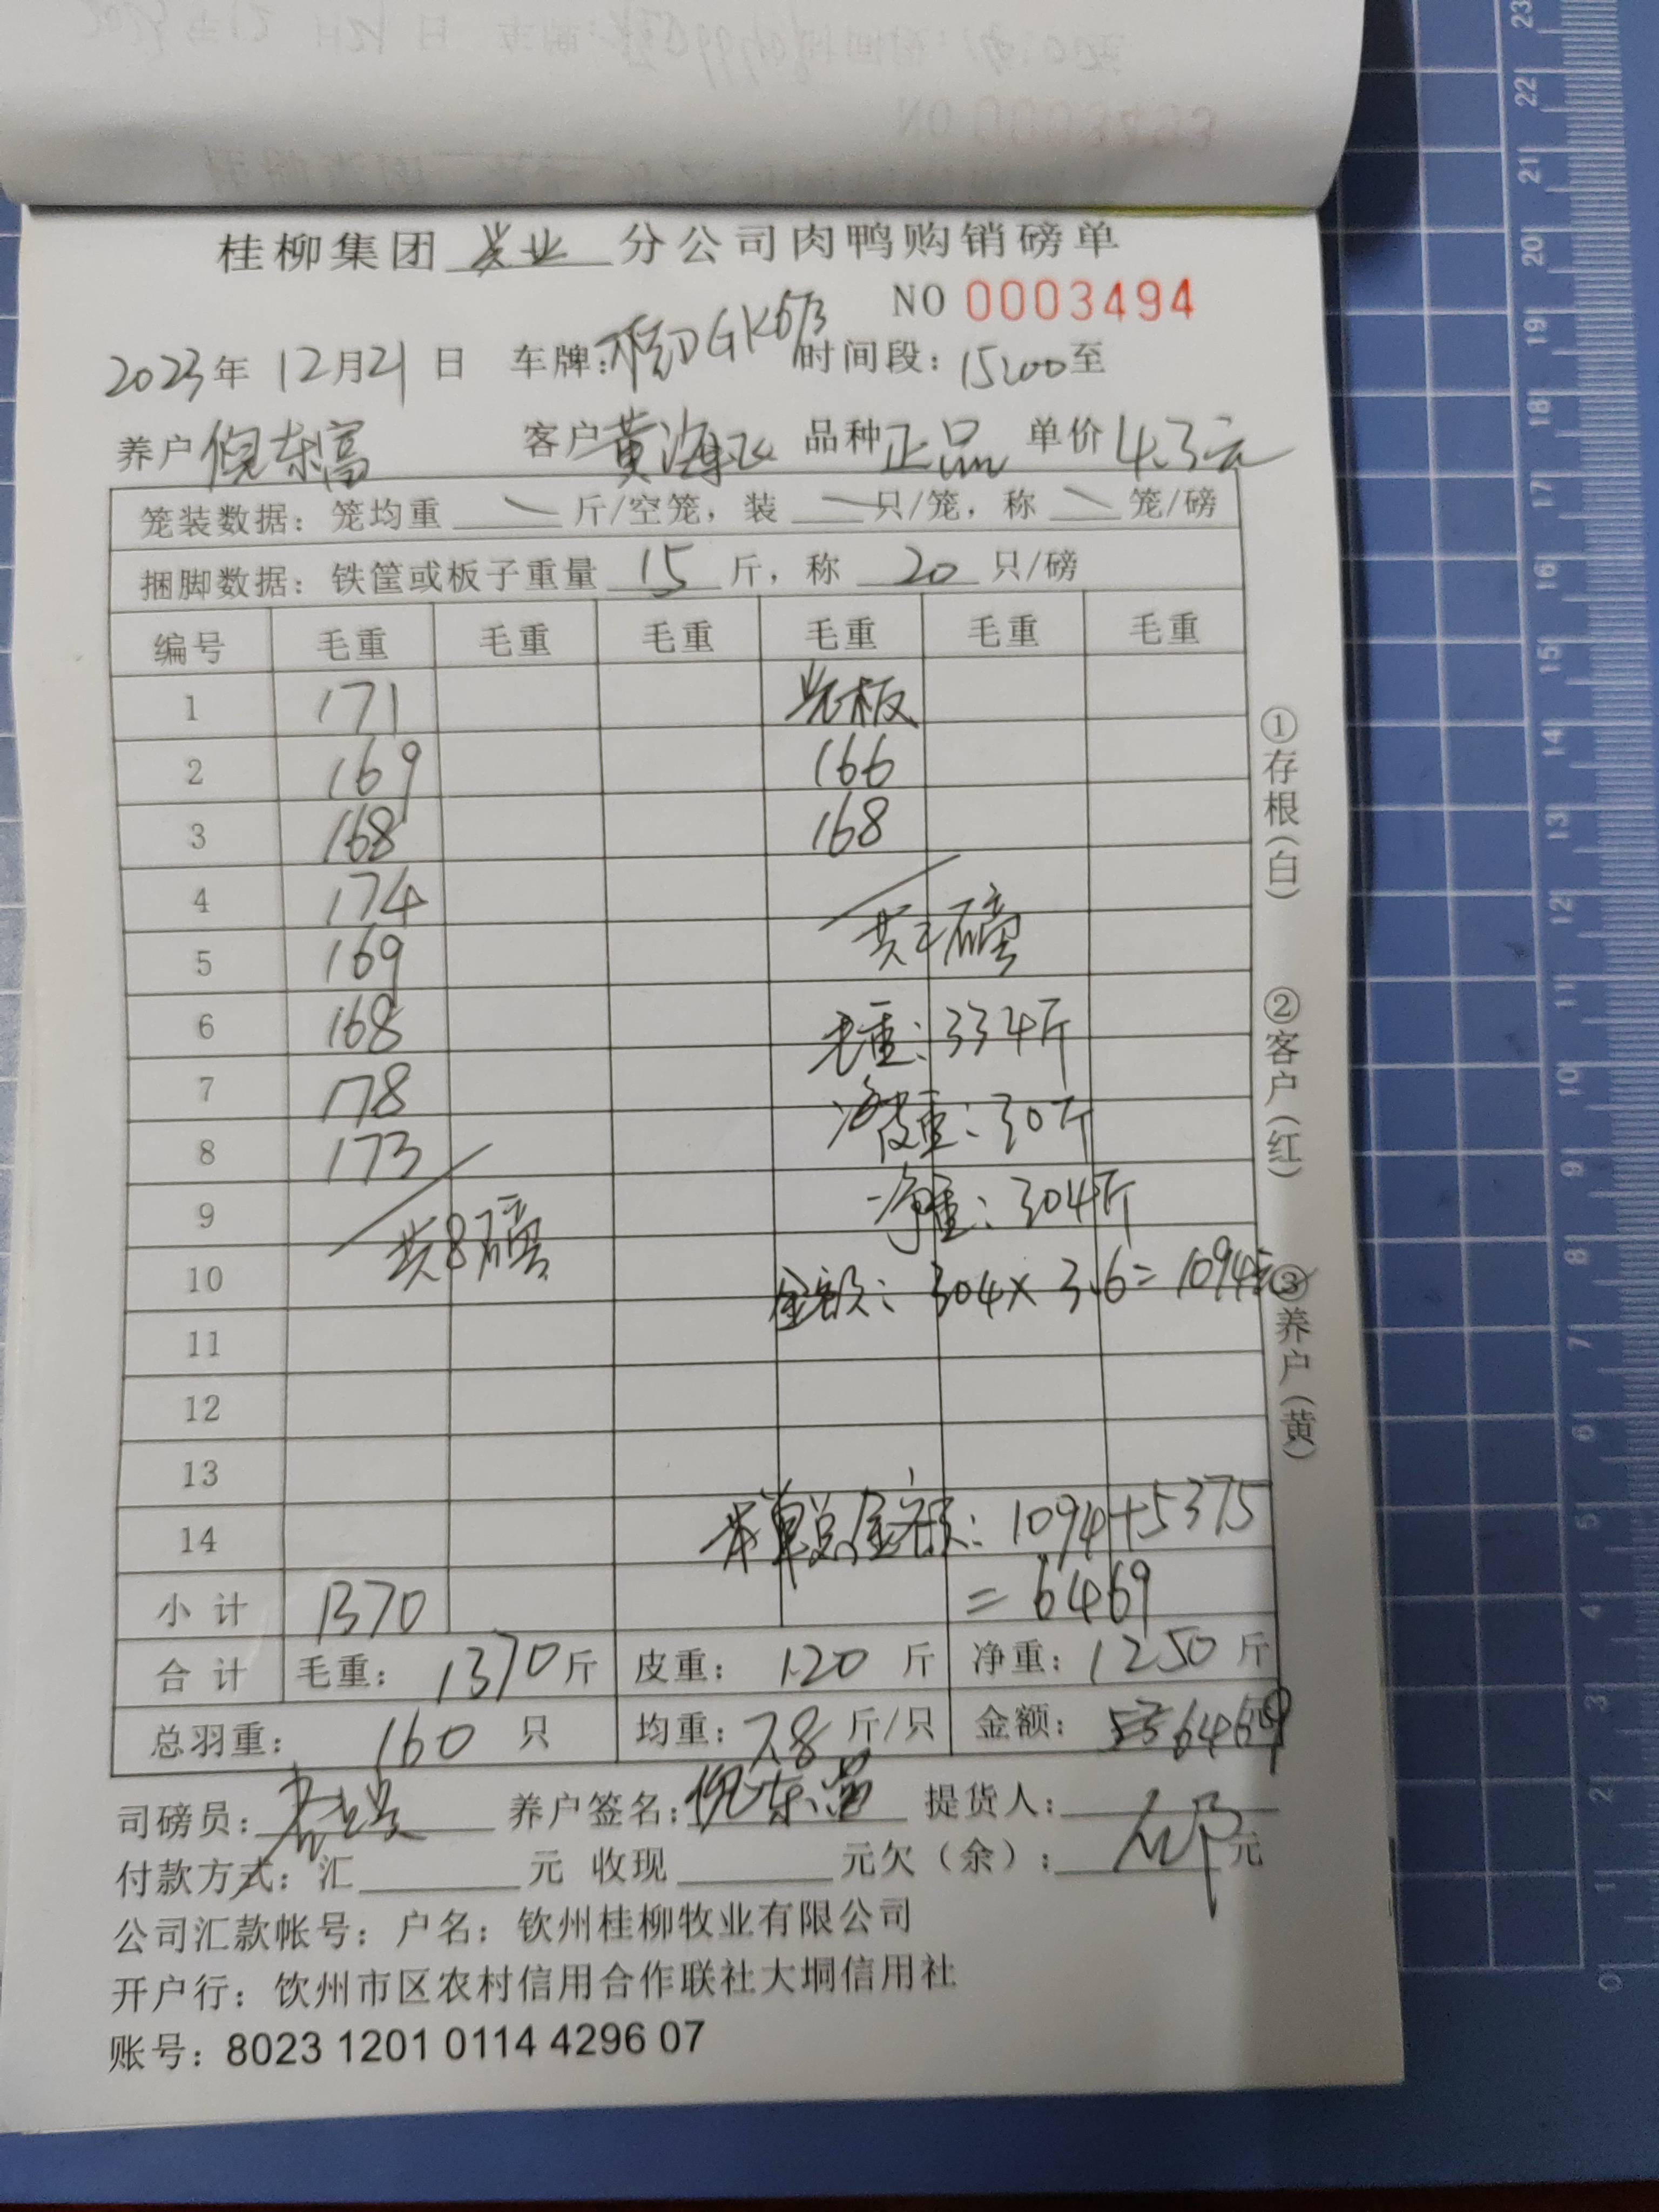 桂柳集团 兴业 分公司肉鸭购销磅单
NO 0003494
2023年 12月21日 车牌: 时间段: 15:00至
养户 倪东富 客户 黄海飞 品种 正品 单价 4.3元
笼装数据: 笼均重 \ 斤/空笼, 装 \ 只/笼, 称 \ 笼/磅
捆脚数据: 铁筐或板子重量 15 斤, 称 20 只/磅
编号 毛重 毛重 毛重 毛重 毛重 毛重
1 171 光板
2 169 166
3 168 168
4 174
共2磅
5 169
6 168 毛重: 334斤
7 178 皮重: 30斤
8 173
9 净重: 304斤
共8磅
10 金额: 304×3.6=1094元
11
12
13
14 本单总金额: 1094+5375
小计 1370 =6469
合计 毛重: 1370斤 皮重: 120斤 净重: 1250斤
总羽重: 160只 均重: 7.8斤/只 金额: 6469
司磅员: 养户签名: 倪东富 提货人:
付款方式: 汇 元 收现 元欠(余): 元
公司汇款帐号: 户名: 钦州桂柳牧业有限公司
开户行: 饮州市区农村信用合作联社大垌信用社
账号: 8023 1201 0114 4296 07
①存根(白)
②客户(红)
③养户(黄)